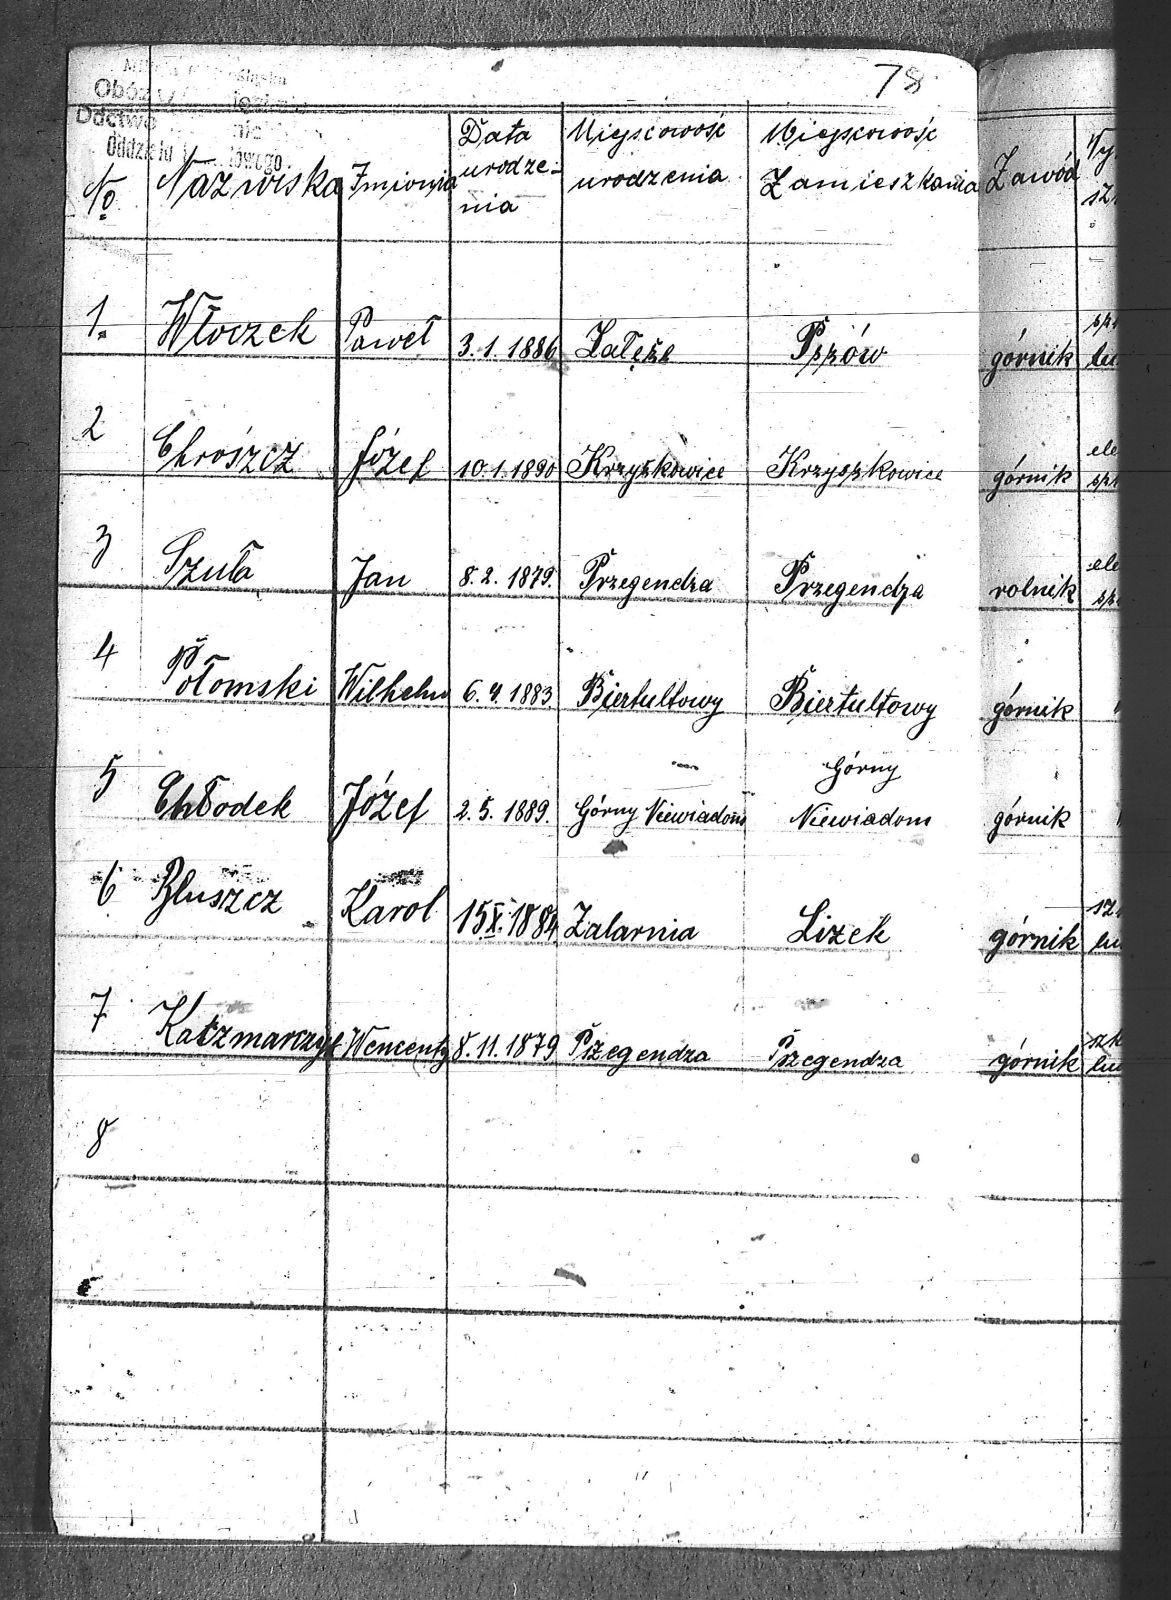 78
Obóz
Odctwa
Oddziału
No Nazwiska Imionia Data urodzenia Miejscowość urodzenia Miejscowość Zamieszkania Zawód
1. Włoczek Paweł 3.1.1886 Załęże Pszów górnik
2 Chrószcz Józef 10.1.1890 Krzyżkowice Krzyszkowice górnik
3 Szuła Jan 8.2.1879. Przegendza Przegendza rolnik
4 Połomski Wilhelm 6.4.1883 Biertułtowy Biertułtowy górnik
5 Chłodek Józef 2.5.1889. Górny Niewiadom Górny Niewiadom górnik
6 Bluszcz Karol 15.X.1884 Zalarnia Lizek górnik
7 Katzmarczyk Wencenty 8.11.1879 Pszegendza Pszegendza górnik
8